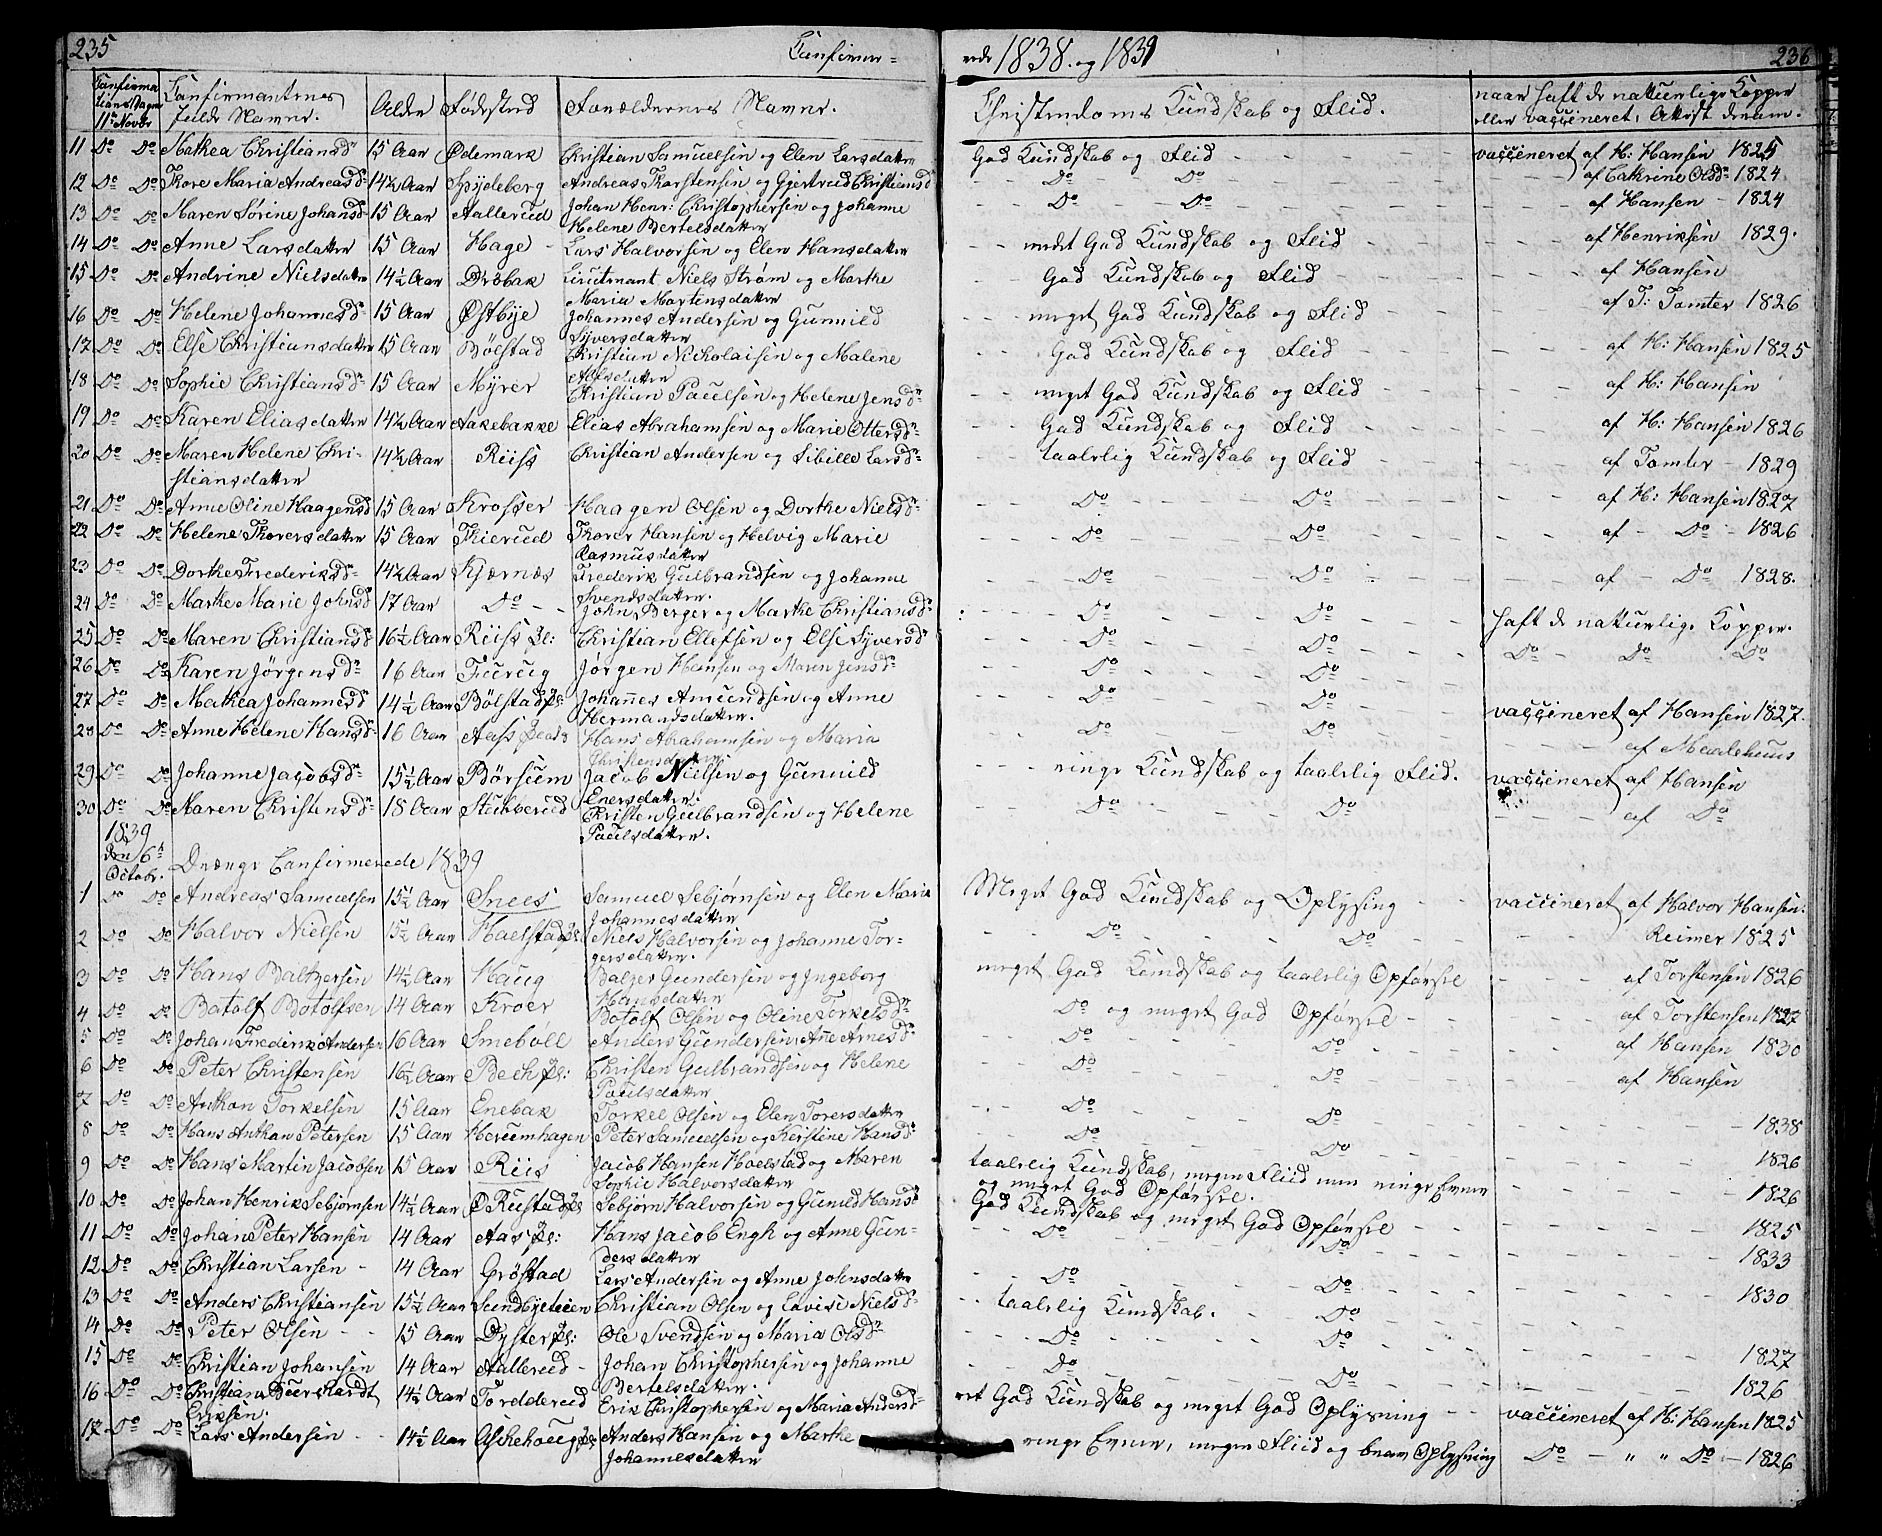 235 Confirme=
rede 1838. og 1839 236
Confirma
tions Dagen
11te Novbr
Confirmanternes
fulde Navne.
Alder Fødested Forældrenes Navne.
Christendoms Kundskab og Flid.
naar haft de naturlige Kopper
eller vaccineret, Attest derom.
11 Do Do Mathea Christiansdr 15 Aar Ødemark Christian Samuelsen og Elen Larsdatter God Kundskab og Flid vaccineret af H: Hansen 1825
12 Do Do Thore Maria Andreasdr 14½ Aar Spydeberg Andreas Thorstensen og Gjertrud Christiansd Do Do af Cathrine Olsdr 1824
13 Do Do Maren Sørine Johansd 15 Aar Aallerud Johan Henr: Christophersen og Johanne Do Do af Hansen 1824
Helene Bertelsdatter
14 Do Do Anne Larsdatter 15 Aar Hage Lars Halvorsen og Elen Hansdatter meget God Kundskab og Flid af Henriksen 1829.
15 Do Do Andrine Nielsdatter 14½ Aar Drøbak Lieutnant Niels Strøm og Marthe God Kundskab og Flid af Hansen
Maria Martensdatter
16 Do Do Helene Johannesdr 15 Aar Østbye Johannes Andersen og Gunnild meget God Kundskab og Flid af T: Tomter 1826
Syversdatter
17 Do Do Else Christiansdatter 15 Aar Bølstad Christian Nickolaisen og Malene God Kundskab og Flid af H: Hansen 1825
Alfsdatter
18 Do Do Sophie Christiansdr 15 Aar Myrer Christian Paulsen og Helene Jensdr meget God Kundskab og Flid af H: Hansen
19 Do Do Karen Eliasdatter 14½ Aar Aakebakke Elias Abrahamsen og Marie Ottersdr God Kundskab og Flid af H: Hansen 1826
20 Do Do Maren Helene Chri- 14½ Aar Riiss Christian Andersen og Sibille Larsdr taalelig Kundskab og Flid af Tomter 1829
stiansdatter
21 Do Do Anne Oline Haagensd 15 Aar Krosser Haagen Olsen og Dorthe Nielsdr Do Do af H: Hansen 1827
22 Do Do Helene Thoersdatter 15 Aar Thierud Thorer Hansen og Helvig Marie Do Do af Do 1826
Rasmusdatter
23 Do Do Dorthe Frederiksdr 14½ Aar Kjærnæs Frederik Gulbrandsen og Johanne Do Do af Do 1828.
Svendsdatter.
24 Do Do Marthe Marie Johnsd 17 Aar Do John Berger og Marthe Christiansdr Do Do haft de naturlige Kopper.
25 Do Do Maren Christiansdr 16½ Aar Riiss Pl: Christian Ellefsen og Else Syversdr Do Do Do Do Do
26 Do Do Karen Jørgensdr 16 Aar Fuurug Jørgen Hansen og Maren Jensdr Do Do
27 Do Do Mathea Johannesd 14½ Aar Bølstad Pl: Johannes Amundsen og Anne Do Do vaccineret af Hansen 1827.
Hermansdatter.
28 Do Do Anne Helene Hansdr 16 Aar Aass Hans Abrahamsen og Maria Do Do af
Christensdatter
29 Do Do Johanne Jacobsdr 15½ Aar Børsum Jacob Nielsen og Gunnild ringe Kundskab og taalelig Flid. vaccineret af Hansen
Enersdatter.
30 Do Do Maren Christensdr 18 Aar Stubberud Christen Gulbrandsen og Helene Do Do af Do
Paulsdatter.
1839
den 6te
Octobr.
Drenge Confirmerede 1839
1 Do Do Andreas Samuelsen 15½ Aar Snees Samuel Sebjørnsen og Elen Maria Meget God Kundskab og Oplysing vaccineret af Halvor Hansen.
Johannesdatter
2 Do Do Halvor Nielsen 15½ Aar Haelstad Pl: Niels Halvorsen og Johanne Tor- Do Do Reimer 1825
gersdatter.
3 Do Do Hans Baltzersen 14½ Aar Haug Balzer Gundersen og Ingeborg meget God Kundskab og taalelig Opførsel af Torstensen 1826
Hansdatter
4 Do Do Botolf Botolfsen 14 Aar Kroer Botolf Olsen og Oline Torkelsdr Do og meget God Opførsel af Torstensen 1827
5 Do Do Johan Frederik Andersen 16 Aar Smeboll Anders Gundersen, Ane Arnesdr Do Do af Hansen 1830
6 Do Do Peter Christensen 16½ Aar Bech Pl: Christen Gulbrandsen og Helene Do Do af Hansen
Paulsdatter
7 Do Do Anthon Torkelsen 15 Aar Enebak Torkel Olsen og Elen Torersdatter Do Do
8 Do Do Hans Anthon Petersen 15 Aar Horumhagen Peter Samuelsen og Kirstine Hansdr Do Do 1838
9 Do Do Hans Martin Jacobsen 15 Aar Riis Jacob Hansen Hoelstad og Maren taalelig Kundskab, megen Fliid men ringe Evner 1826
Sophie Halvorsdatter og meget God Opførsel.
10 Do Do Johan Henrik Sebjørnsen 14½ Aar Ø Rustad Pl: Sebjørn Halvorsen og Gunild Hansd God Kundskab og meget God Opførsel 1826
11 Do Do Johan Peter Hansen 14 Aar Aas Pl: Hans Jacob Engh og Anne Gun- Do Do 1825
dersdatter
12 Do Do Christian Larsen 14 Aar Grøstad Lars Andersen og Anne Johnsdatter Do Do 1833
13 Do Do Anders Christiansen 15½ Aar Sundbyeteien Christian Olsen og Lovise Nielsdr taalelig Kundskab. Do 1830
14 Do Do Peter Olsen 15 Aar Dyster Pl: Ole Svendsen og Maria Olsdr Do Do
15 Do Do Christian Johansen 14 Aar Aallerud Johan Christophersen og Johanne Do Do 1827
Bertelsdatter.
16 Do Do Christian Buerchardt 14½ Aar Tordderud Erik Christophersen og Maria Andersdr God Kundskab og meget God Oplysning 1826
Eriksen. vaccineret af H: Hansen 1825
17 Do Do Lars Andersen 14½ Aar Askehoug Pl: Anders Hansen og Marthe ringe Evner, megen Fliid og Oplysning Do " " Do 1826
Johannesdatter